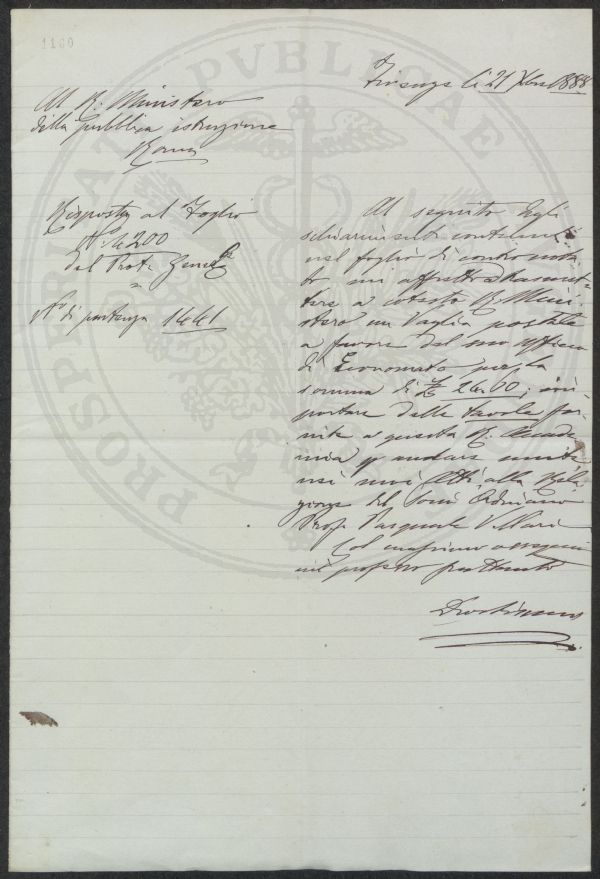 1160
Firenze li 21 Xbre 1888
Al R. Ministero
della pubblica istruzione
Roma
Risposta al Foglio
N.
del Prot. Gener.
N. di partenza 1441
Al seguito degli
schiarimenti contenuti
nel foglio di contronota
to mi affretto a trasmet-
tere a cotesto R. Mini
stero un Vaglia postale
a favore del suo Ufficio
di Economato per la
somma di £
portare delle tavole for
nite a questa R. Accade
mia p andare unite
nei suoi Atti, alla Rela
zione del Socio
Prof. Pasquale Villari
Col massimo ossequio
mi professo